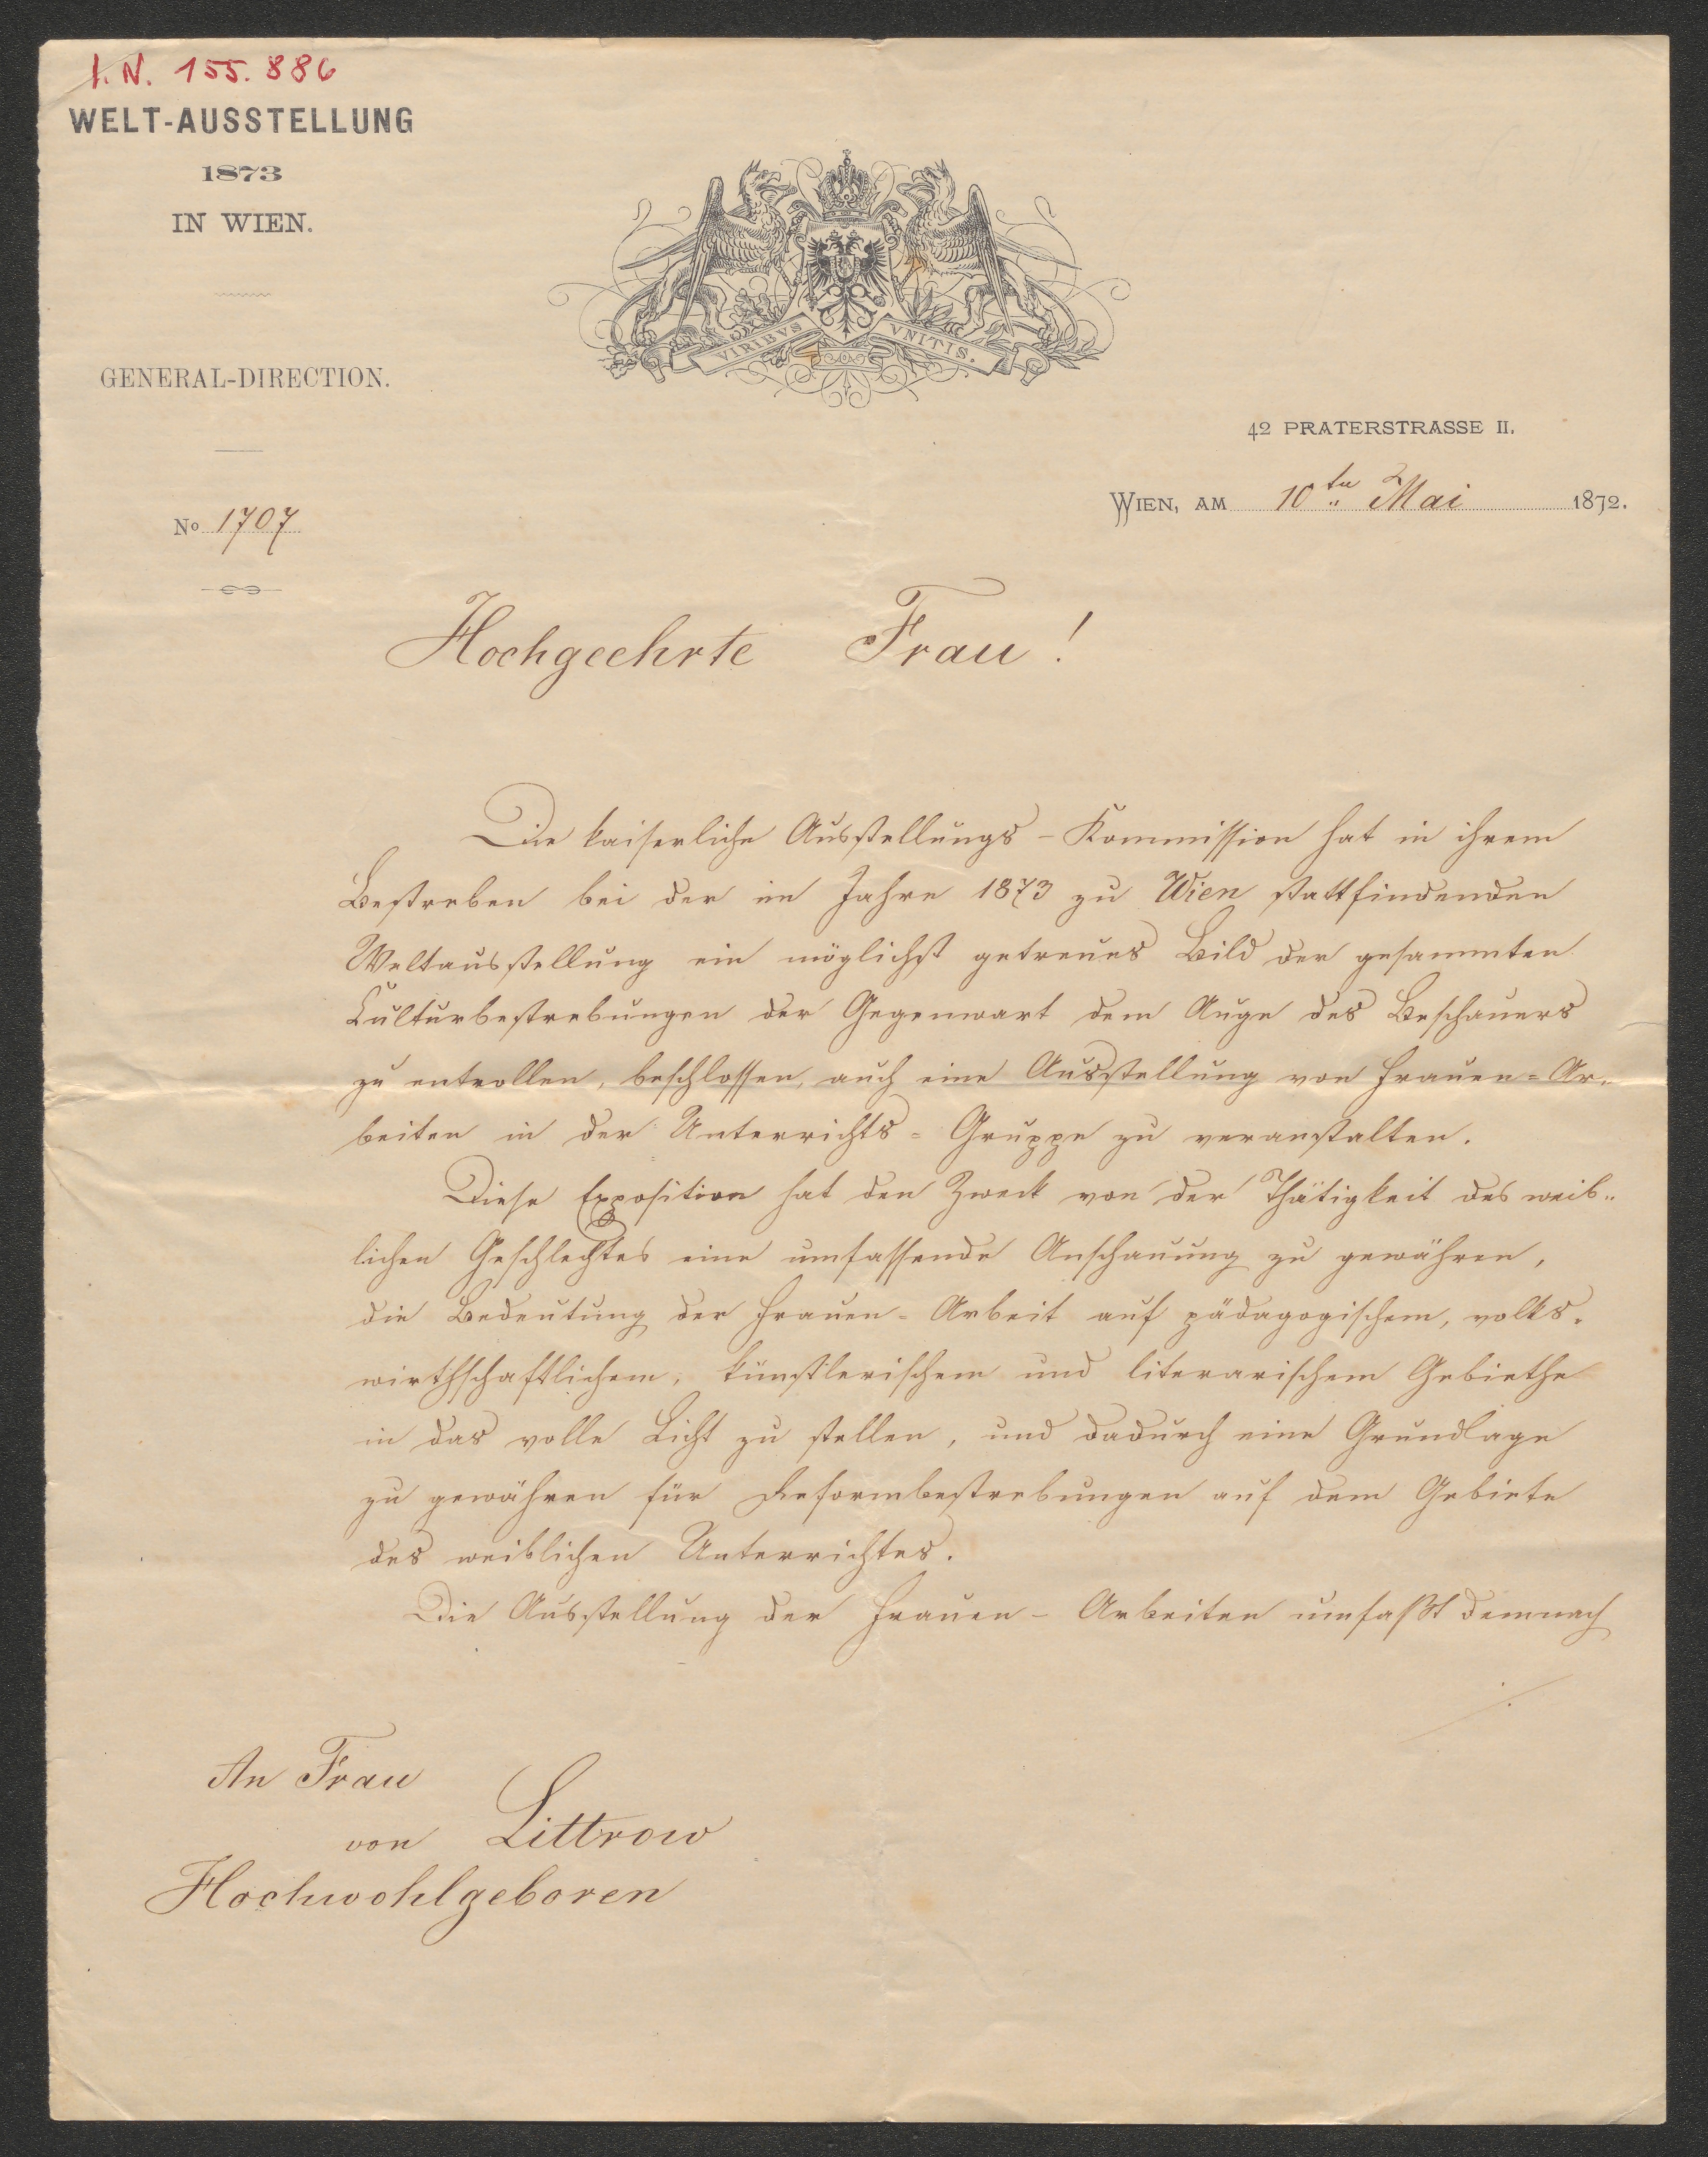 I.N. 155.886
WELT-AUSSTELLUNG
1873
IN WIEN.
GENERAL-DIRECTION.
VIRIBVS VNITIS.
42 PRATERSTRASSE II.
WIEN, AM 10ten Mai 1872.
No 1707
Hochgeehrte Frau!
Die kaiserliche Ausstellungs-Kommission hat in ihrem
Bestreben bei der im Jahre 1873 zu Wien stattfindenden
Weltausstellung ein möglichst getreues Bild der gesammten
Culturbestrebungen der Gegenwart dem Auge des Beschauers
zu entrollen, beschlossen, auch eine Ausstellung von Frauen=Ar-
beiten in der Unterrichts=Gruppe zu veranstalten.
Diese Exposition hat den Zweck von der Thätigkeit des weib-
lichen Geschlechtes eine umfassende Anschauung zu gewähren,
die Bedeutung der Frauen-Arbeit auf pädagogischem, volks-
wirthschaftlichem, künstlerischem und literarischem Gebiethe
in das volle Licht zu stellen, und dadurch eine Grundlage
zu gewähren für Reformbestrebungen auf dem Gebiete
des weiblichen Unterrichtes.
Die Ausstellung der Frauen-Arbeiten umfaßt demnach
./.
An Frau
von Littrow
Hochwohlgeboren